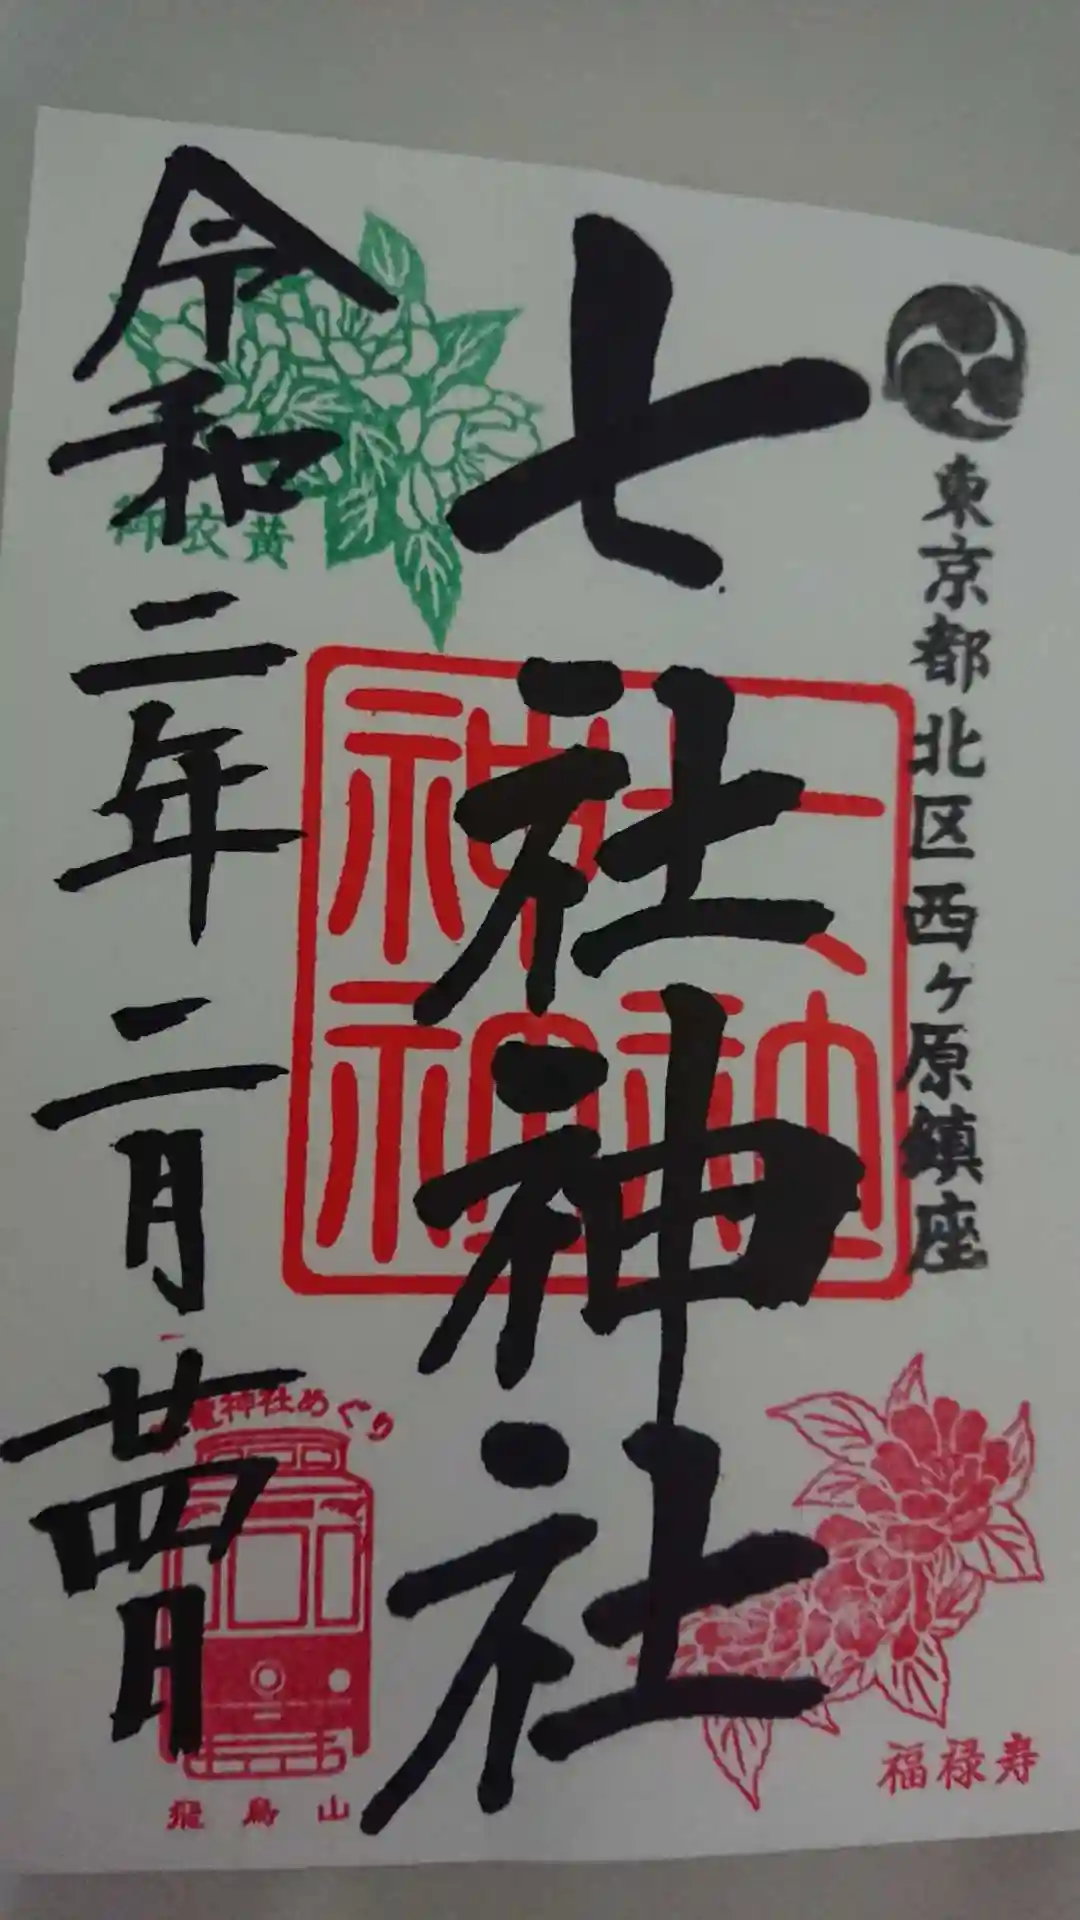 東京都北区西ヶ原鎮座
七社神社
令和二年二月廿四日
御衣黄
福禄寿
電神社めぐり
飛鳥山